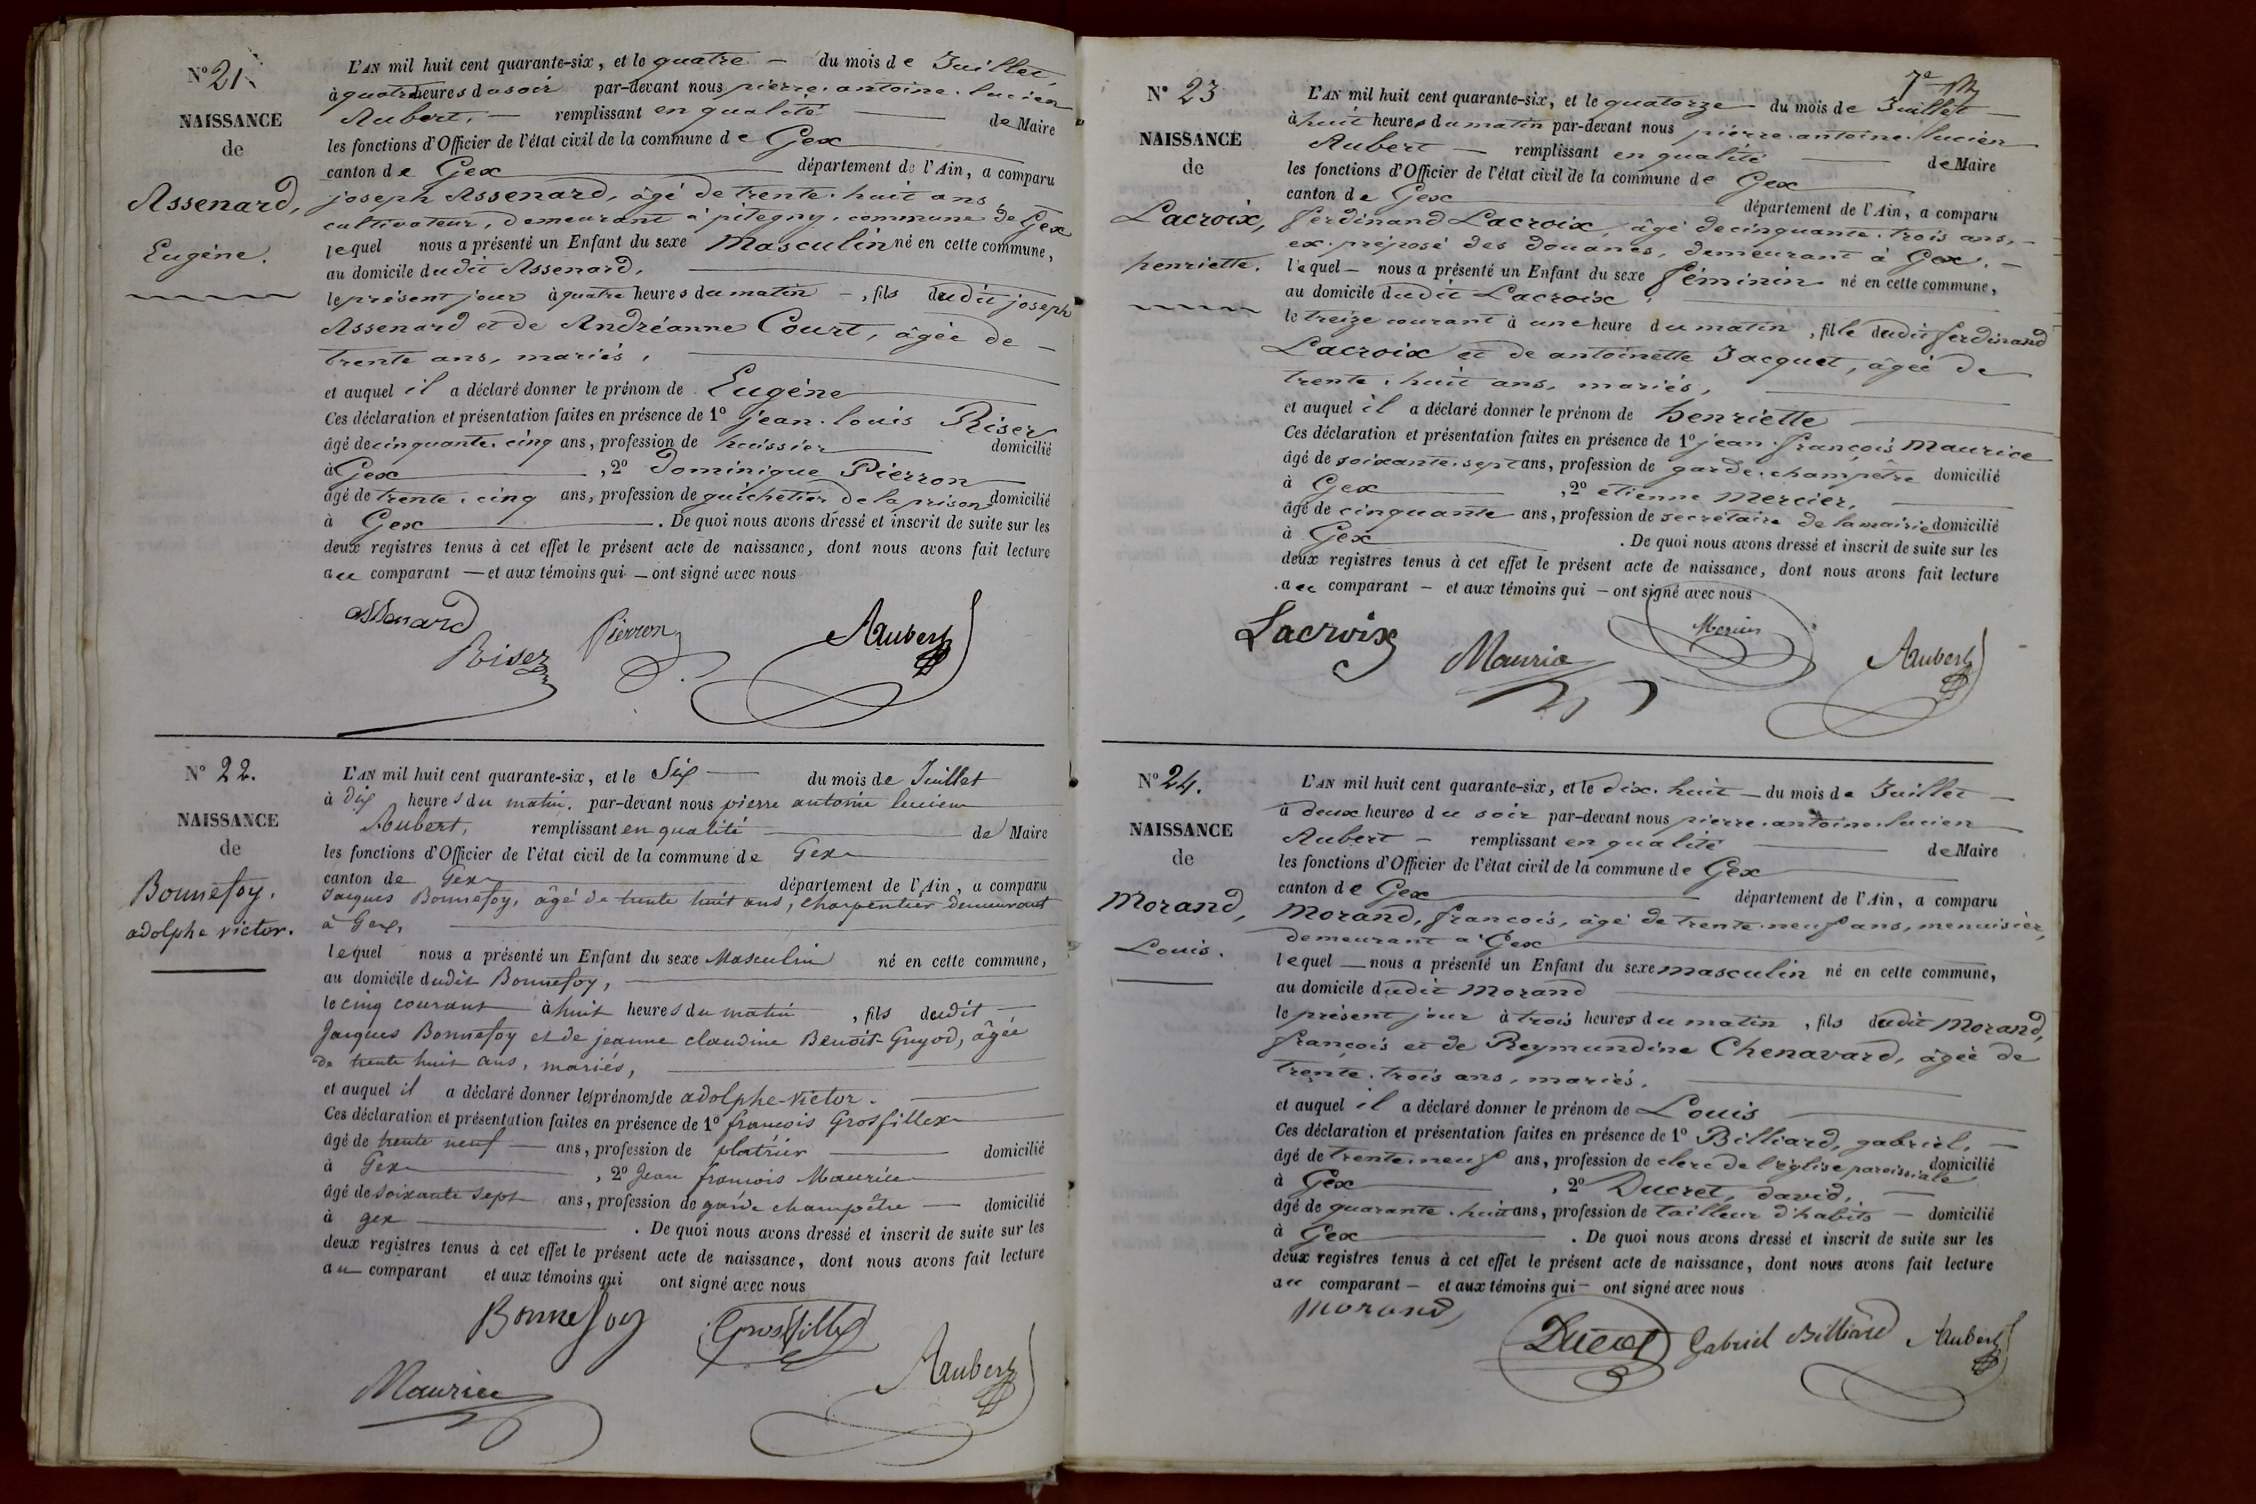 N° 21.
NAISSANCE
de
Assenard,
Eugène.
L'AN mil huit cent quarante-six, et le quatre — du mois de Juillet,
à quatre heures du soir par-devant nous pierre. antoine. lucien
Aubert, — remplissant en qualité — de Maire
les fonctions d'Officier de l'état civil de la commune de Gex
canton de Gex — département de l'Ain, a comparu
joseph Assenard, âgé de trente. huit ans,
cultivateur, demeurant à pitegny, commune de Gex
lequel nous a présenté un Enfant du sexe Masculin né en cette commune,
au domicile dudit Assenard, —
le présent jour à quatre heures du matin —, fils dudit joseph
Assenard et de Andréanne Court, âgée de —
trente ans, mariés, —
et auquel il a déclaré donner le prénom de Eugène
Ces déclaration et présentation faites en présence de 1° jean. louis Riser
âgé de cinquante. cinq ans, profession de huissier — domicilié
à Gex —, 2° Dominique Pierron
âgé de trente. cinq ans, profession de guichetier de la prison domicilié
à Gex —. De quoi nous avons dressé et inscrit de suite sur les
deux registres tenus à cet effet le présent acte de naissance, dont nous avons fait lecture
au comparant — et aux témoins qui — ont signé avec nous
assenard
Riser
Pierron
Aubert
N° 22.
NAISSANCE
de
Bonnefoy.
adolphe victor.
L'AN mil huit cent quarante-six, et le Six — du mois de Juillet
à dix heures du matin. par-devant nous pierre antoine lucien
Aubert, remplissant en qualité — de Maire
les fonctions d'Officier de l'état civil de la commune de Gex
canton de Gex — département de l'Ain, a comparu
Jacques Bonnefoy, âgé de trente huit ans, charpentier demeurant
à Gex, —
lequel nous a présenté un Enfant du sexe Masculin né en cette commune,
au domicile dudit Bonnefoy, —
le cinq courant à huit heures du matin, fils dudit —
Jacques Bonnefoy et de jeanne claudine Benoit-Guyod, âgée
de trente huit ans, mariés, —
et auquel il a déclaré donner le(s) prénom(s) de adolphe-victor. —
Ces déclaration et présentation faites en présence de 1° françois Grosfillex
âgé de trente neuf — ans, profession de platrier — domicilié
à Gex —, 2° Jean françois Maurice
âgé de soixante sept ans, profession de garde champêtre — domicilié
à gex —. De quoi nous avons dressé et inscrit de suite sur les
deux registres tenus à cet effet le présent acte de naissance, dont nous avons fait lecture
au comparant et aux témoins qui ont signé avec nous
Bonnefoy
Grosfillex
Maurice
Aubert
7e
N° 23
NAISSANCE
de
Lacroix,
henriette.
L'AN mil huit cent quarante-six, et le quatorze — du mois de Juillet —
à huit heures du matin par-devant nous pierre. antoine. lucien
Aubert — remplissant en qualité — de Maire
les fonctions d'Officier de l'état civil de la commune de Gex
canton de Gex — département de l'Ain, a comparu
ferdinand Lacroix, âgé de cinquante. trois ans, —
ex. préposé des douanes, demeurant à Gex. —
lequel — nous a présenté un Enfant du sexe féminin né en cette commune,
au domicile dudit Lacroix, —
le treize courant à une heure du matin, fille dudit ferdinand
Lacroix et de antoinette Jacquet, âgée de
trente. huit ans, mariés, —
et auquel il a déclaré donner le prénom de henriette
Ces déclaration et présentation faites en présence de 1° jean. françois Maurice
âgé de soixante. sept ans, profession de garde. champêtre domicilié
à Gex —, 2° etienne Mercier, —
âgé de cinquante ans, profession de secrétaire de la mairie domicilié
à Gex —. De quoi nous avons dressé et inscrit de suite sur les
deux registres tenus à cet effet le présent acte de naissance, dont nous avons fait lecture
au comparant — et aux témoins qui — ont signé avec nous
Lacroix
Maurice
Mercier
Aubert
N° 24.
NAISSANCE
de
Morand,
Louis.
L'AN mil huit cent quarante-six, et le dix. huit — du mois de Juillet —
à deux heures du soir par-devant nous pierre. antoine. lucien
Aubert — remplissant en qualité — de Maire
les fonctions d'Officier de l'état civil de la commune de Gex
canton de Gex — département de l'Ain, a comparu
Morand, françois, âgé de trente. neuf ans, menuisier,
demeurant à Gex —
lequel — nous a présenté un Enfant du sexe masculin né en cette commune,
au domicile dudit Morand —
le présent jour à trois heures du matin, fils dudit Morand,
françois et de Reymundine Chenavard, âgée de
trente. trois ans, mariés. —
et auquel il a déclaré donner le prénom de Louis —
Ces déclaration et présentation faites en présence de 1° Billiard, gabriel, —
âgé de trente. neuf ans, profession de clerc de l'église paroissiale domicilié
à Gex —, 2° Ducret, david, —
âgé de quarante. huit ans, profession de tailleur d'habits — domicilié
à Gex —. De quoi nous avons dressé et inscrit de suite sur les
deux registres tenus à cet effet le présent acte de naissance, dont nous avons fait lecture
au comparant — et aux témoins qui — ont signé avec nous
Morand
Ducret
Gabriel Billiard
Aubert